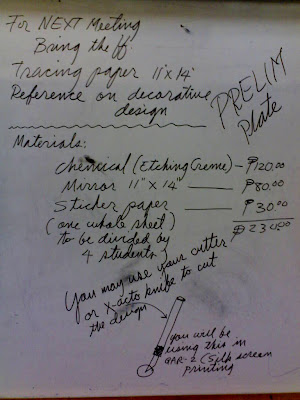 For NEXT Meeting
Bring the ff:
Tracing paper 11"x 14"
Reference on decorative
design
PRELIM
Plate
Materials:
Chemical (Etching Creme) - ₱120.00
Mirror 11" x 14" — ₱80.00
Sticker paper — ₱30.00
(one whole sheet) ₱230.00
to be divided by
4 students)
You may use your cutter
or X-acto knife to cut
the design
you will be
using this in
GAR-2 (Silk screen
printing